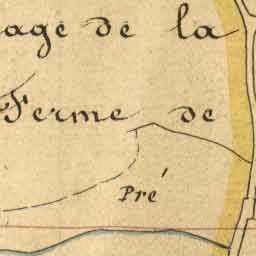 age de la
Ferme de
Pré